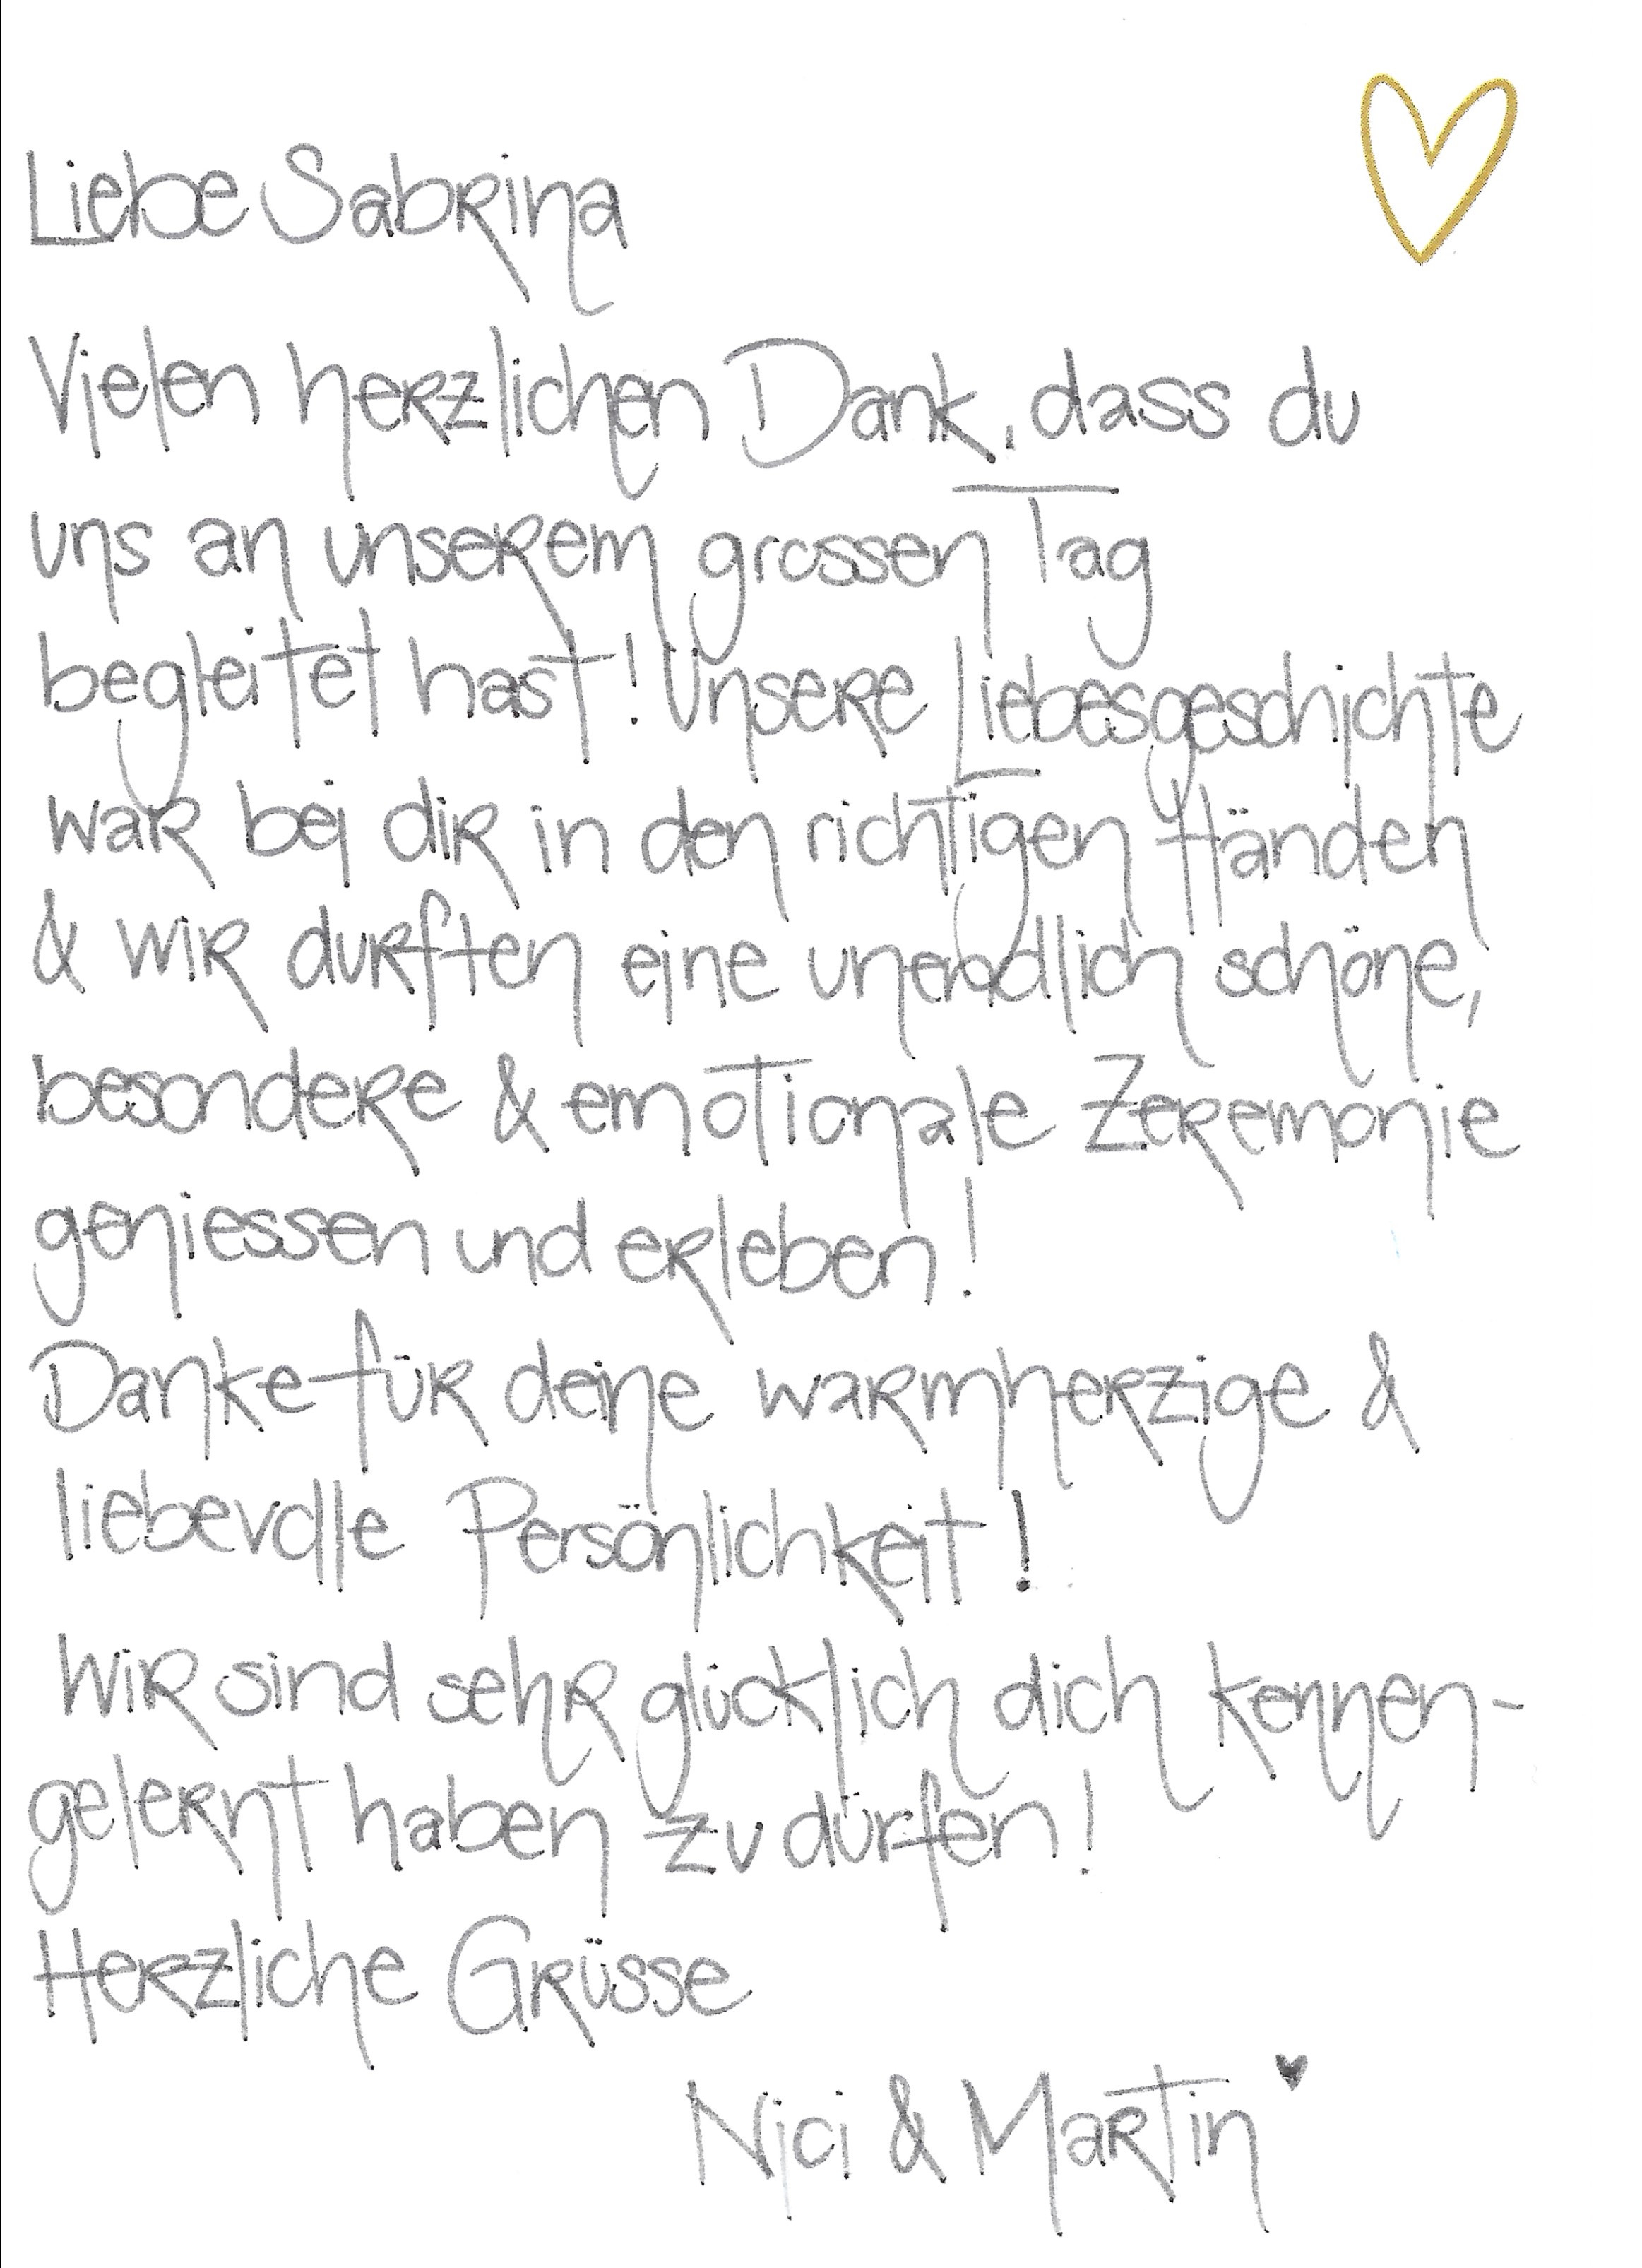 Liebe Sabrina
Vielen herzlichen Dank, dass du
uns an unserem grossen Tag
begleitet hast! Unsere Liebesgeschichte
war bei dir in den richtigen Händen
& wir durften eine unendlich schöne,
besondere & emotionale Zeremonie
geniessen und erleben!
Danke für deine warmherzige &
liebevolle Persönlichkeit!
Wir sind sehr glücklich dich kennen-
gelernt haben zu dürfen!
Herzliche Grüsse
Nici & Martin